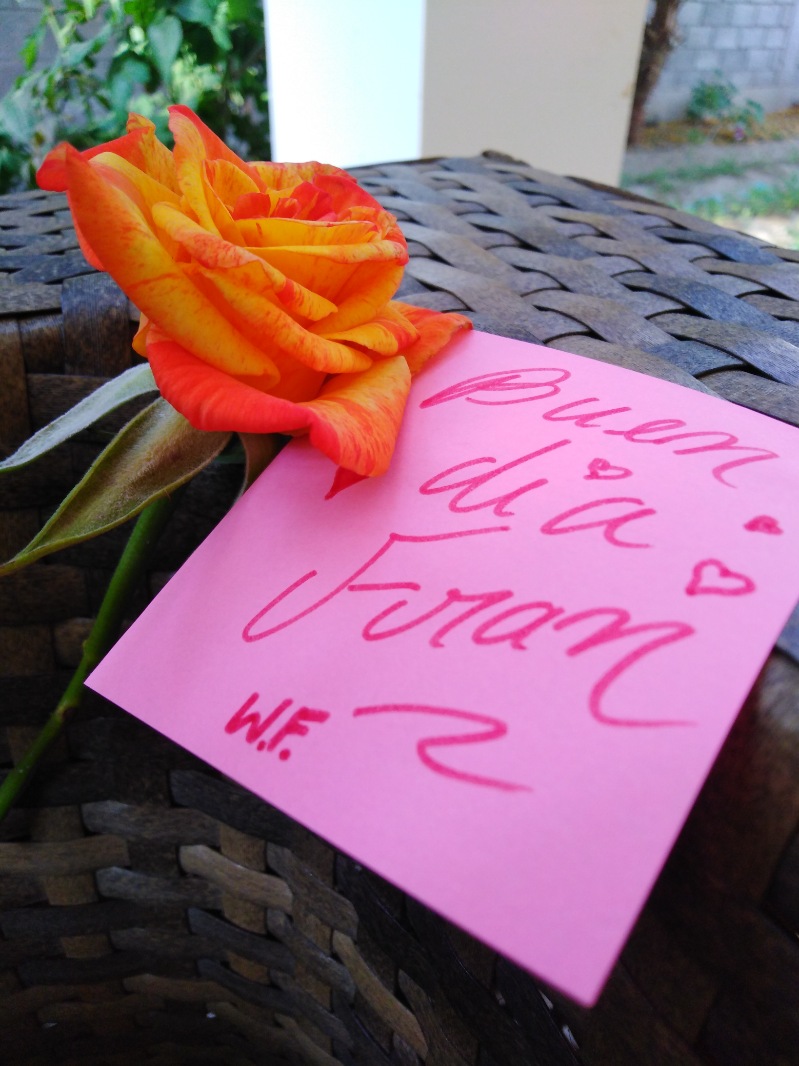 Buen
día
Fran
W.F.